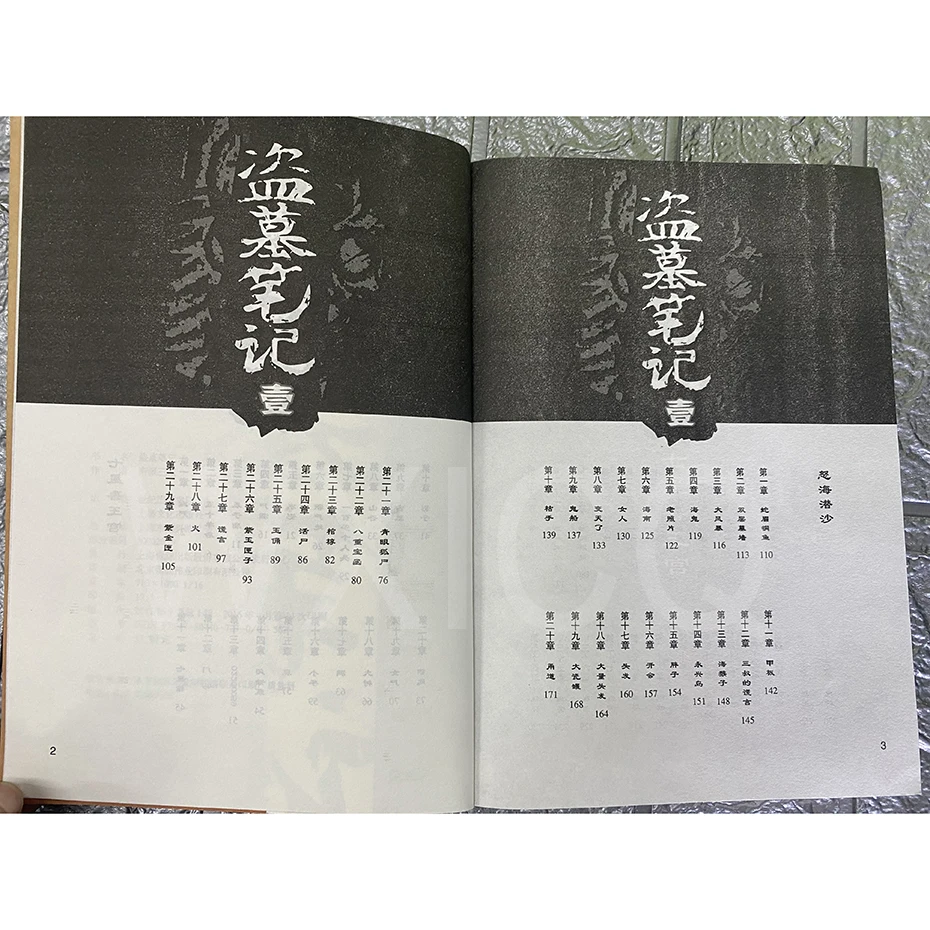 盗墓笔记
壹
第二十一章 青眼狐尸 76
第二十二章 八重宝函 80
第二十三章 棺椁 82
第二十四章 活尸 86
第二十五章 玉俑 89
第二十六章 紫玉匣子 93
第二十七章 谎言 97
第二十八章 火 101
第二十九章 紫金匣 105
2
盗墓笔记
壹
怒海潜沙
第一章 蛇眉铜鱼 110
第二章 双层墓墙 113
第三章 大风暴 116
第四章 海鬼 119
第五章 老照片 122
第六章 海南 125
第七章 女人 130
第八章 变天了 133
第九章 鬼船 137
第十章 枯手 139
第十一章 甲板 142
第十二章 三叔的谎言 145
第十三章 海猴子 148
第十四章 永兴岛 151
第十五章 胖子 154
第十六章 开会 157
第十七章 头发 160
第十八章 大量头发 164
第十九章 大瓷罐 168
第二十章 甬道 171
3